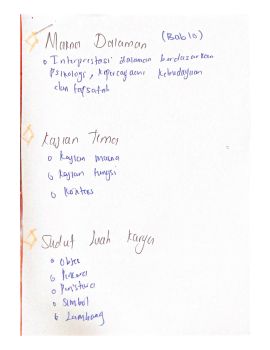 Makna Dalaman (Bab 10)
Interpretasi dalaman berdasarkan
Psikologi, kepercayaan kebudayaan
dan falsafah
Kajian Tema
Kajian makna
Kajian fungsi
Konteks
Sudut Luah Karya
Objek
Perkara
Peristiwa
Simbol
Lambang